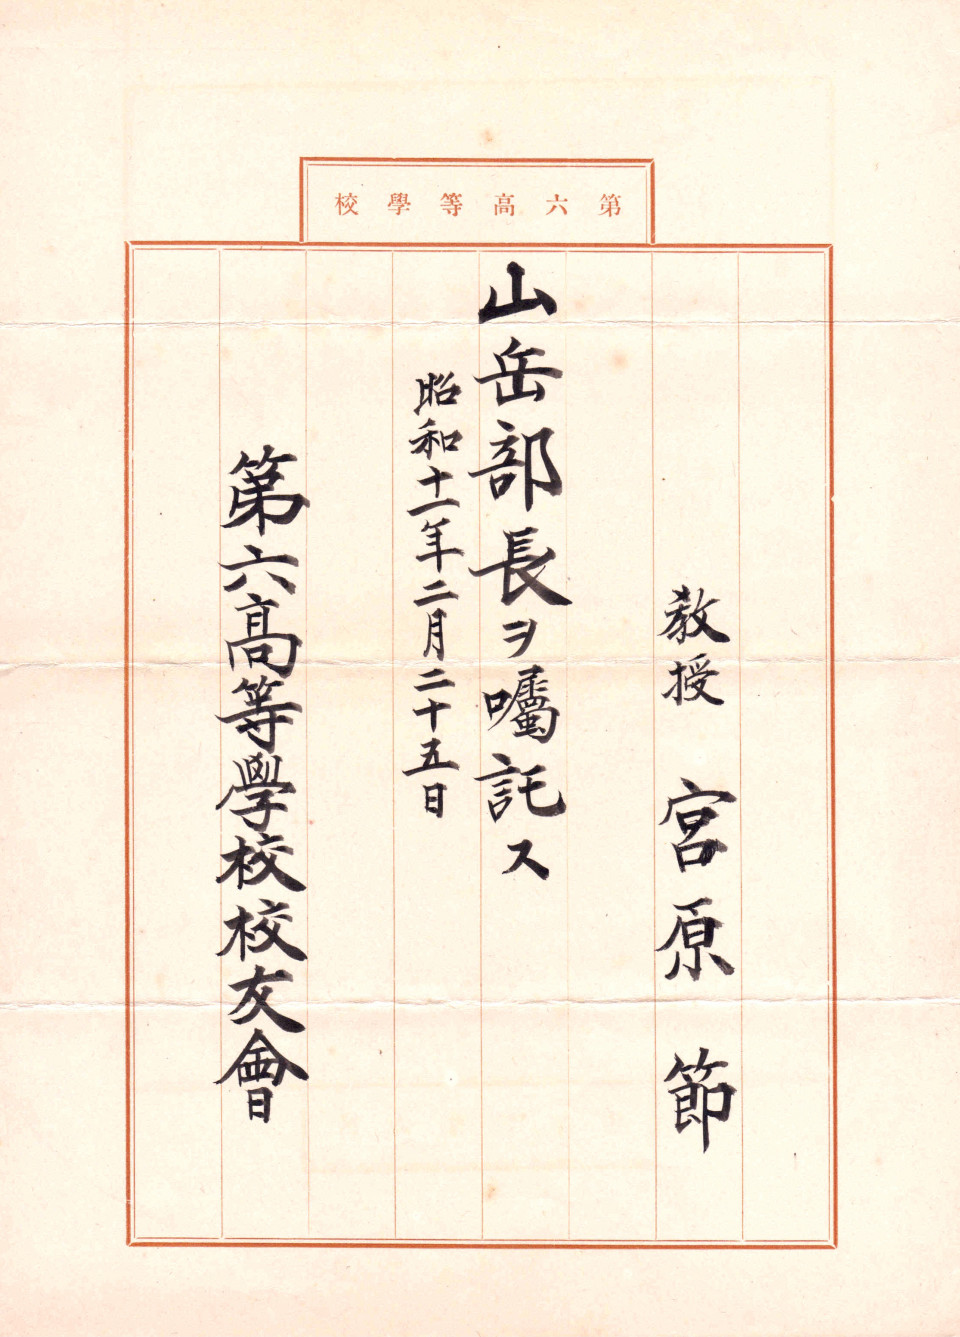 第六高等學校
教授 宮原 節
山岳部長ヲ囑託ス
昭和十一年二月二十五日
第六高等學校校友會